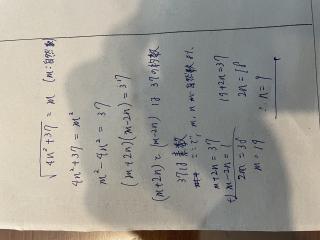 √4n²+37 = m (m:自然数)
4n²+37 = m²
m²-4n² = 37
(m+2n)(m-2n) = 37
(m+2n)と(m-2n) は 37の約数
37は素数
ここで、m, nは自然数より、
m+2n = 37
+) m-2n = 1
2m = 38
m = 19
19+2n = 37
2n = 18
∴ n = 9